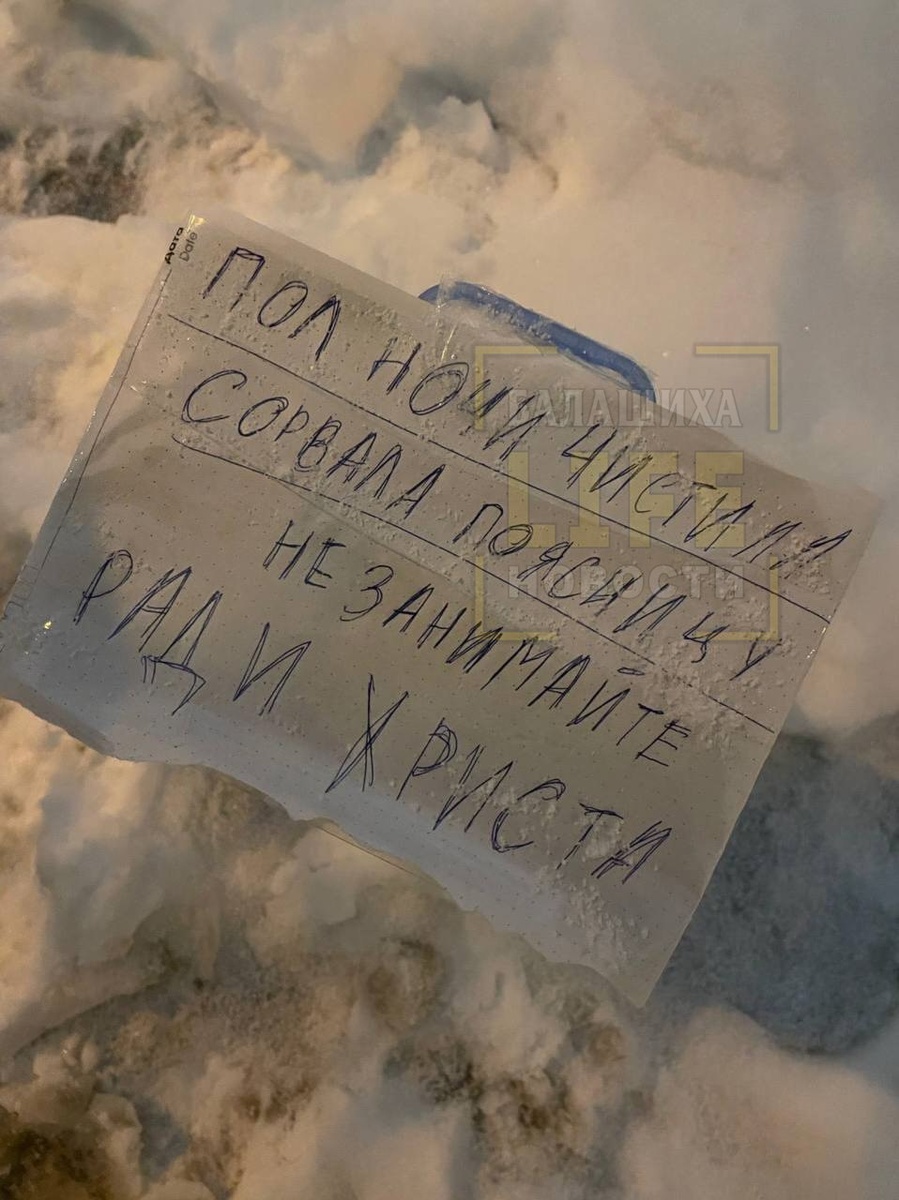 Дата
Date
ПОЛ НОЧИ ЧИСТИЛИ
СОРВАЛА ПОЯСНИЦУ
НЕ ЗАНИМАЙТЕ
РАДИ ХРИСТА
БАЛАШИХА
LIFE
НОВОСТИ